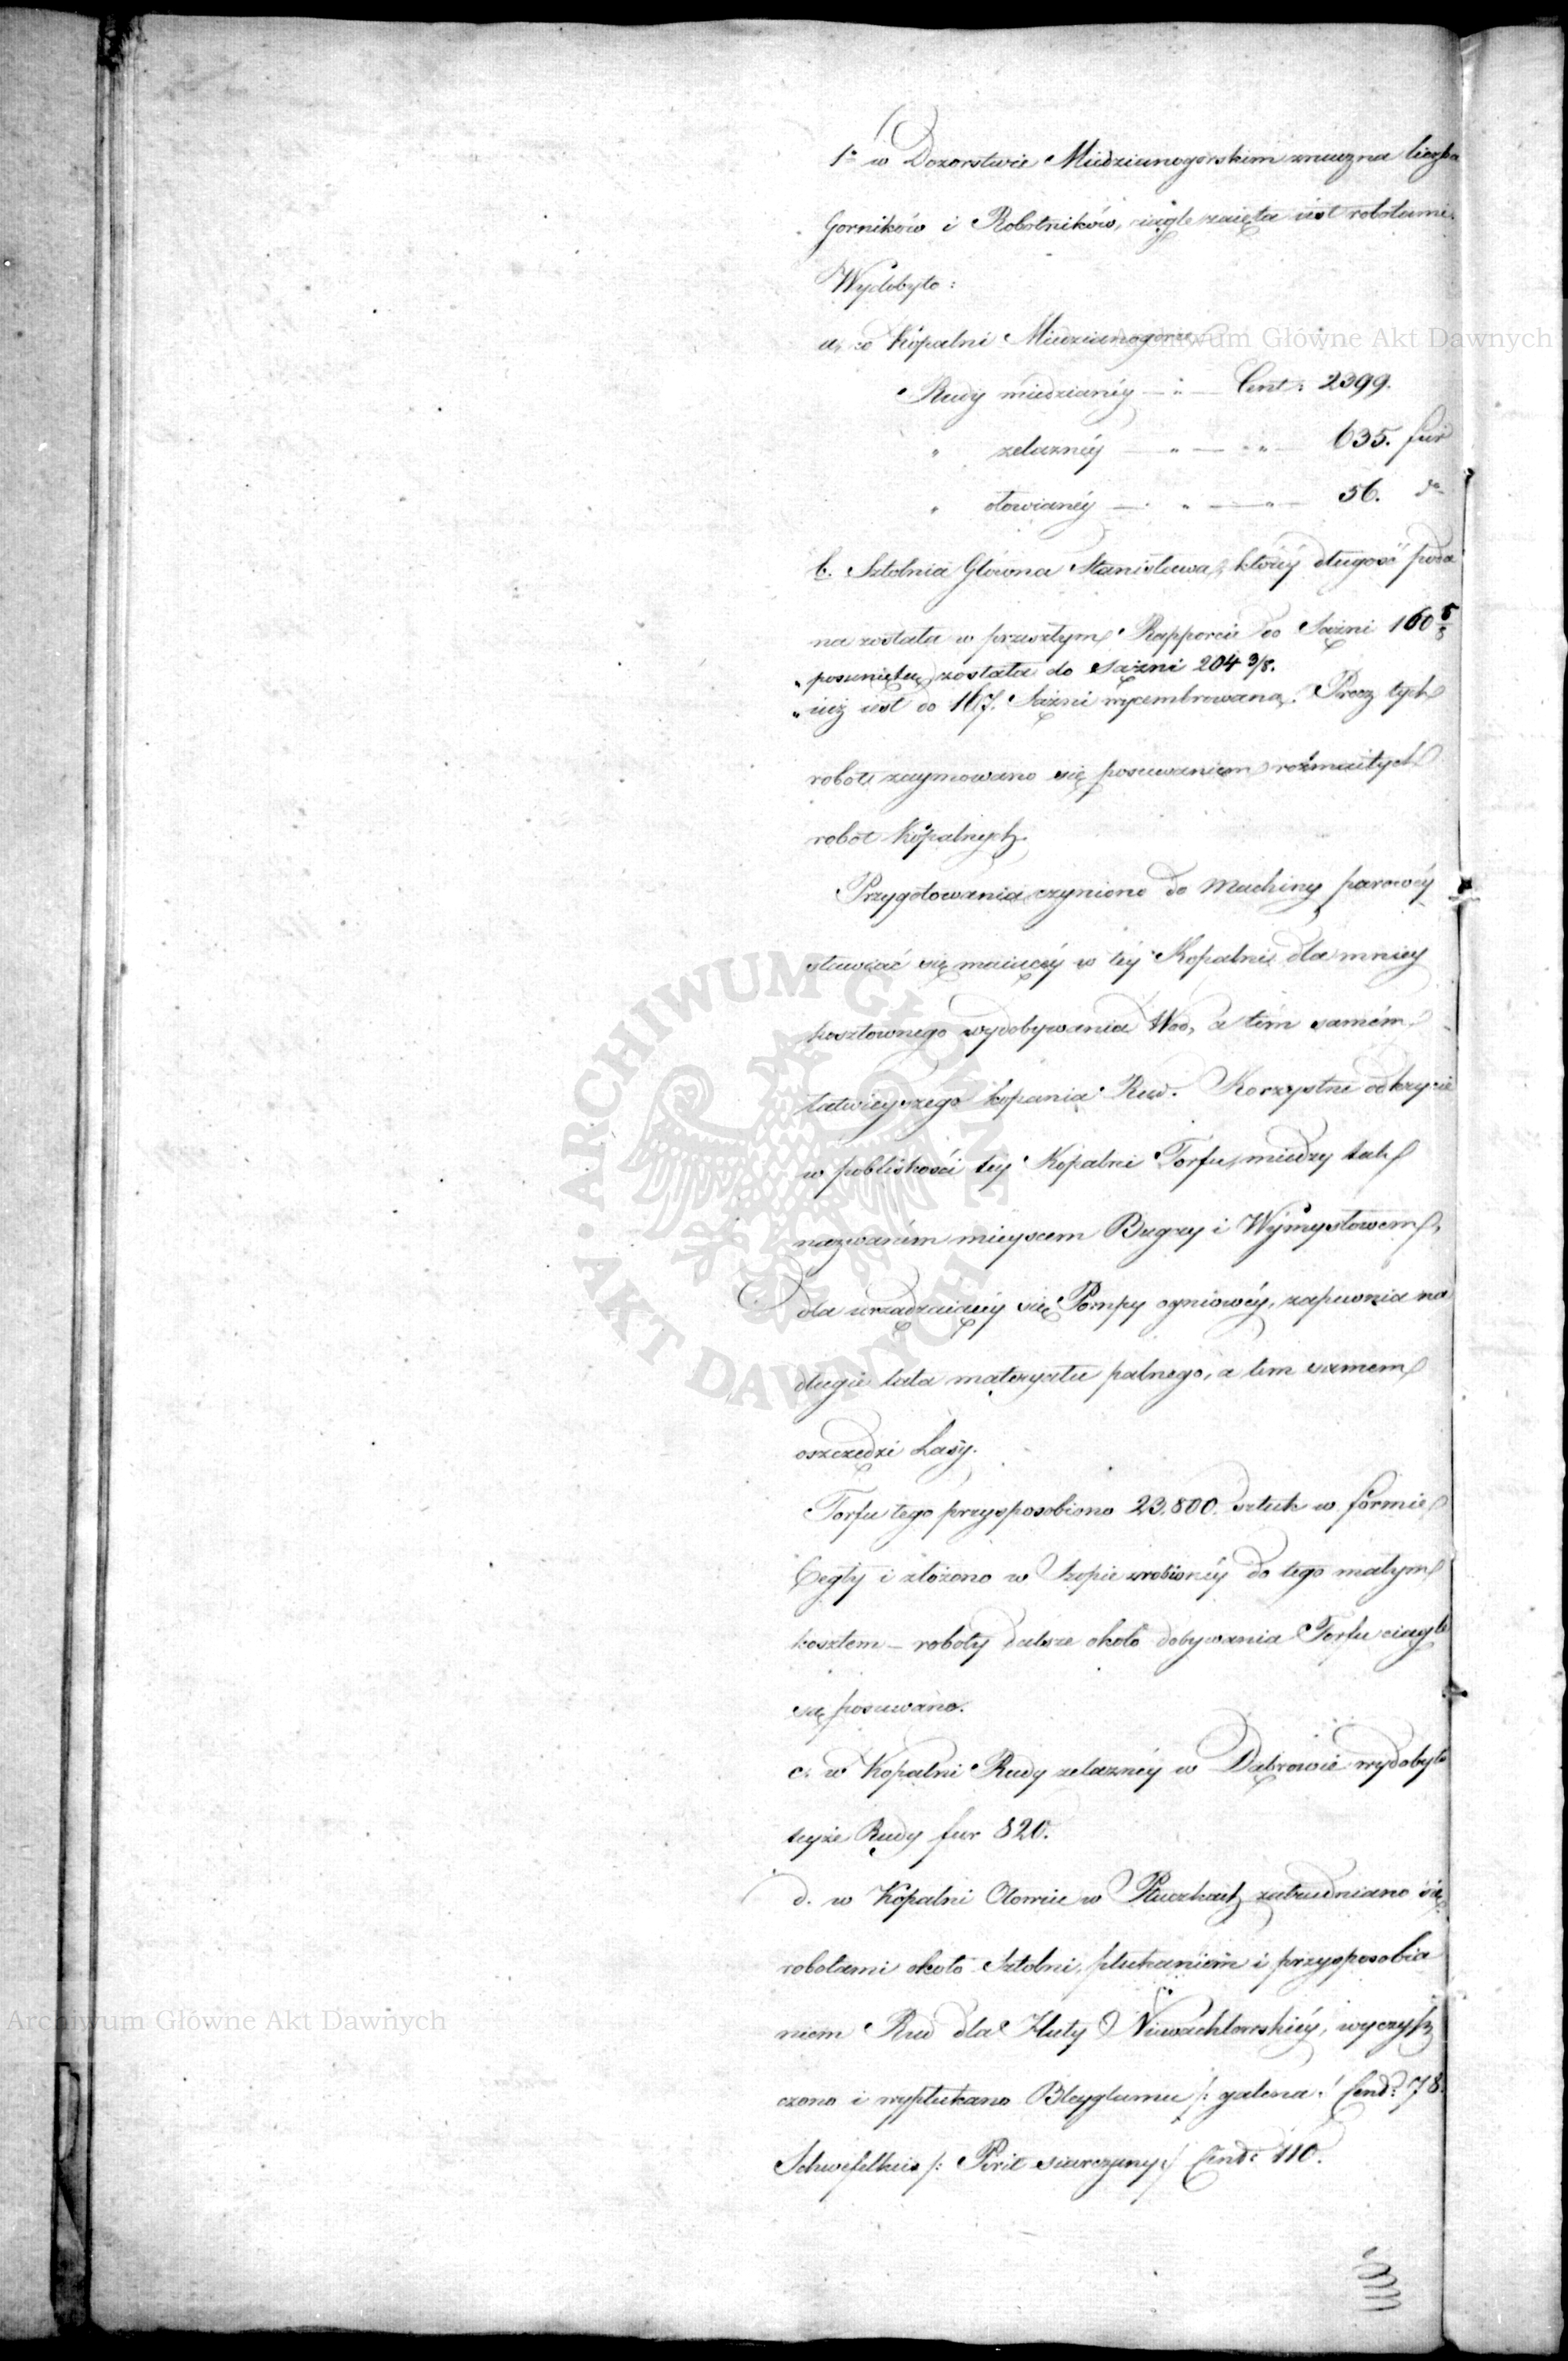 1º w Dozorstwie Miedzianogorskim znaczna liczba
Gorników i Robotników, ciągle zaięta iest robotami.
Wydobyto:
a, w Kopalni Miedzianogorze
Rudy miedzianéy — „ — Cent: 2399.
„ zelaznéy — „ — „ — 635. fur
„ ołowianéy — „ — „ — 56. dº
b. Sztolnia Główna Stanisława, któréy długość poda
na została w przeszłym Rapporcie do Sążni 160 5/8
„ posunięta została do Sążni 204 3/8.
„ iuż iest do 167. Sążni wycembrowana. Procz tych
robot zaymowano się posuwaniem rożmaitych
robot Kopalnych.
Przygotowania czyniono do Machiny parowéy
stawiać się maiącéy w téy Kopalni dla mniey
kosztownego wydobywania Wod, a tém samém
łatwieyszego kopania Rud. Korzystne odkrycie
w pobliskości tey Kopalni Torfu, miedzy tak
nazwaném mieyscem Bugzy i Wymysłowem,
dla urządzaiącéy się Pompy ogniowéy, zapewnia na
długie lata materyału palnego, a tem samem
oszczędzi Lasy.
Torfu tego przysposobiono 23,800. sztuk w formie
Cegły i złożono w Szopie zrobionéy do tego małym
kosztem – roboty dalsze około dobywania Torfu ciągle
są posuwano.
c. w Kopalni Rudy zelaznéy w Dąbrowie wydobyto
teyże Rudy fur 820.
d. w Kopalni Ołowiu w Płuczkach zatrudniano się
robotami około Sztolni, płukaniem i przysposobia
niem Rud dla Huty Niewachlowskiéy, wyczyſz
czono i wypłukano Bleyglancu /: galena :/ Cent: 78.
Schwefelkies /: Pirit siarczany :/ Cent: 110.
Archiwum Główne Akt Dawnych
Archiwum Główne Akt Dawnych
ARCHIWUM GŁÓWNE AKT DAWNYCH